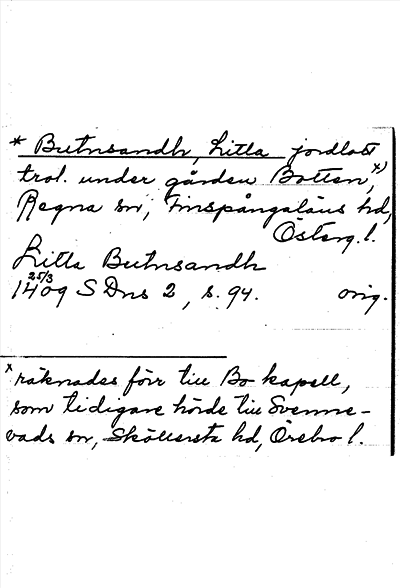 * Butnsandh, Litla jordlott
trol. under gården Botten, x)
Regna sn, Finspångaläns hd,
Österg. l.
Litla Butnsandh
25/3
1409 S Dns 2, s. 94. orig.
x räknades förr till Bo kapell,
som tidigare hörde till Svenne-
vads sn, Sköllersta hd, Örebro l.